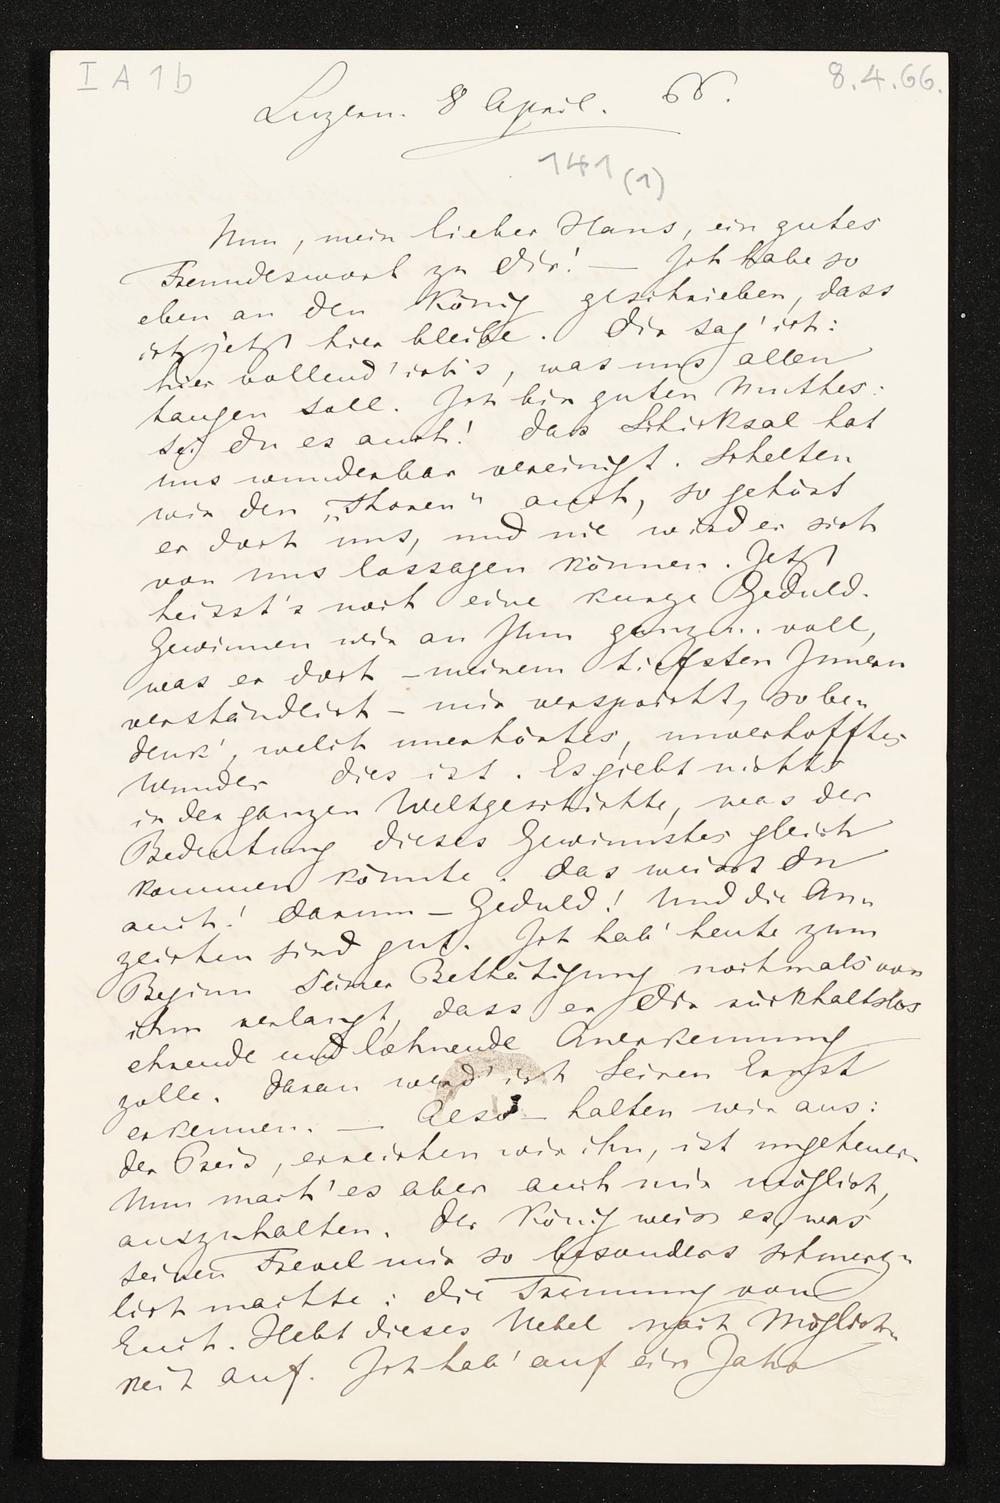 I A 1 b
8.4.66.
Luzern. 8 April. 66.
141 (1)
Nun, mein lieber Hans, ein gutes
Freundeswort zu Dir! — Ich habe so
eben an den König geschrieben, dass
ich jetzt hier bleibe. Dir sag' ich:
hier vollend' ich's, was uns allen
taugen soll. Ich bin guten Muthes:
sei du es auch! Das Schicksal hat
uns wunderbar vereinigt. Schelten
wir den „Thoren" auch, so gehört
er doch uns, und nie wird er sich
von uns lossagen können. Jetzt
heisst's noch eine kurze Geduld.
Gewinnen wir an Ihm ganz u. voll,
was er doch – meinem tiefsten Innern
verständlich – mir verspricht, so be-
denk', welch unerhörtes, unverhofftes
Wunder dies ist. Es giebt nichts
in der ganzen Weltgeschichte, was der
Bedeutung dieses Gewinnstes gleich
kommen könnte. Das weisst Du
auch! Darum – Geduld! Und die An-
zeichen sind gut. Ich hab' heute zum
Beginn Seiner Bethätigung nochmals von
ihm verlangt, dass er Dir rückhaltslos
ehrende und lohnende Anerkennung
zolle. Daran werd' ich Seinen Ernst
erkennen. — Also – halten wir aus:
der Preis, erreichen wir ihn, ist ungeheuer.
Nun mach' es aber auch mir möglich,
auszuhalten. Der König weiss es, was
seinen Frevel mir so besonders schmerz-
lich machte: die Trennung von
Euch. Hebt dieses Uebel nach Möglich-
keit auf. Ich hab' auf ein Jahr